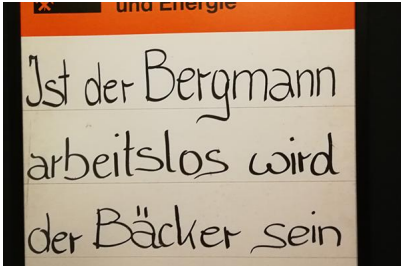 und Energie
Ist der Bergmann
arbeitslos wird
der Bäcker sein